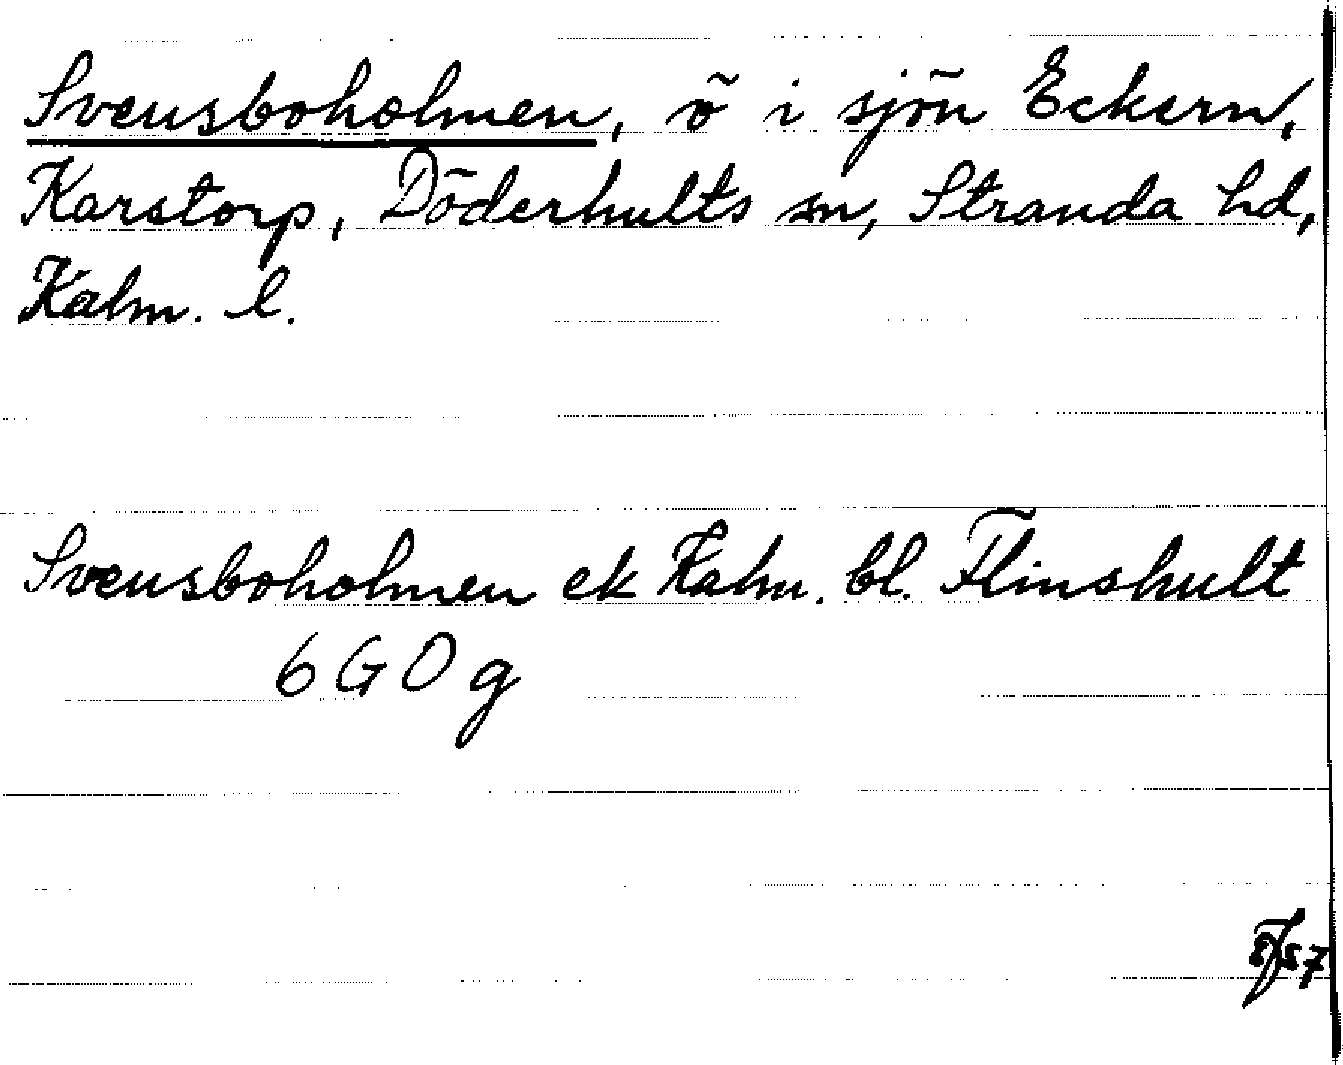 Svensboholmen, ö i sjön Eckern,
Karstorp, Döderhults sn, Stranda hd,
Kalm. l.
Svensboholmen ek Kalm. bl. Flinshult
6 G O g